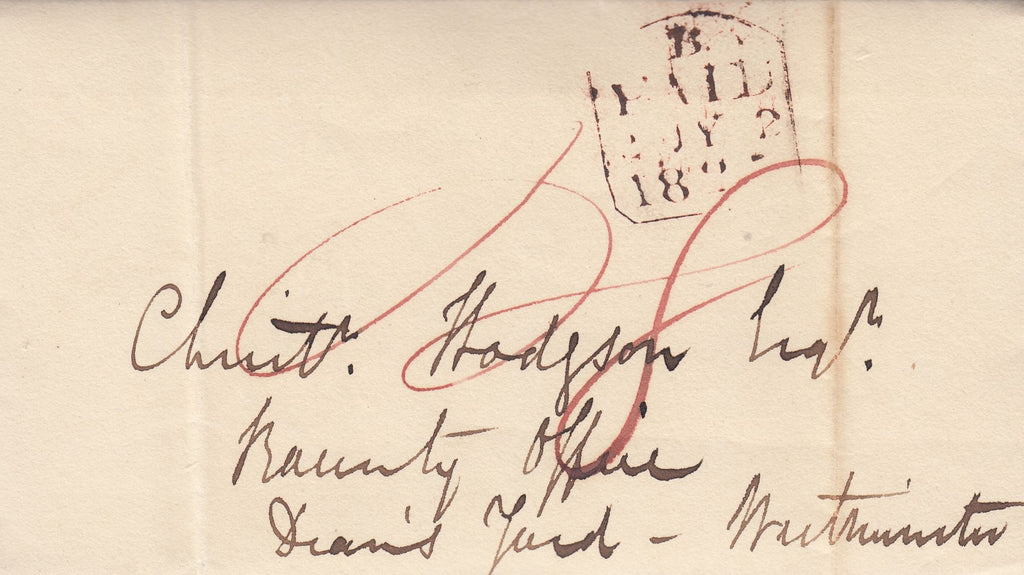 B
PAID
JY 2
Christr. Hodgson Esqr.
Bounty Office
Dean's Yard - Westminster